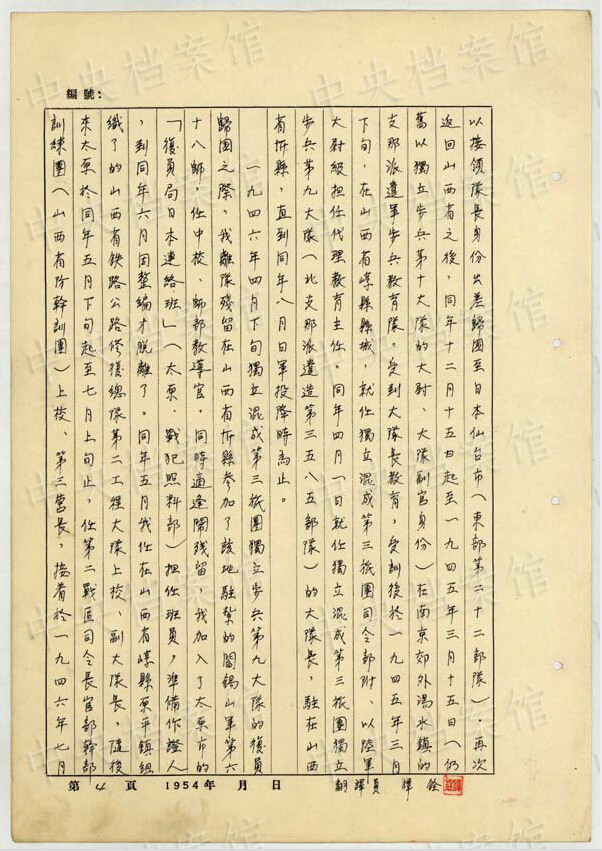 編號：
以接領隊長身份出差歸國至日本仙台市（東部第二十二部隊），再次
返回山西省之後，同年十二月十五日起至一九四五年三月十五日（仍
舊以獨立步兵第十大隊的大尉、大隊副官身份）在南京郊外湯水鎮的
支那派遣軍步兵教育隊，受到大隊長教育，受訓後於一九四五年三月
下旬，在山西省崞縣縣城，就任獨立混成第三旅團司令部附、以陸軍
大尉級担任代理教育主任。同年四月一日就任獨立混成第三旅團獨立
步兵第九大隊（北支那派遣造第三五八五部隊）的大隊長，駐在山西
省忻縣，直到同年八月日軍投降時為止。
一九四六年四月下旬獨立混成第三旅團獨立步兵第九大隊的復員
歸國之際，我離隊殘留在山西省忻縣參加了該地駐紮的閻錫山軍第六
十八師，任中校、師部教導官，同時適逢鬧殘留，我加入了太原市的
「復員局日本連絡班」（太原、戰犯照料部）担任班員，準備作證人
，到同年六月因整編才脫離了。同年五月我任在山西省崞縣原平鎮組
織了的山西省鉄路公路修復總隊第二工程大隊上校、副大隊長，隨後
來太原於同年五月下旬起至七月上旬止，任第二戰區司令長官部幹部
訓練團（山西省防幹訓團）上校、第三營長，接着於一九四六年七月
第 4 頁 1954年 月 日
翻譯員 譯銓
中央档案馆